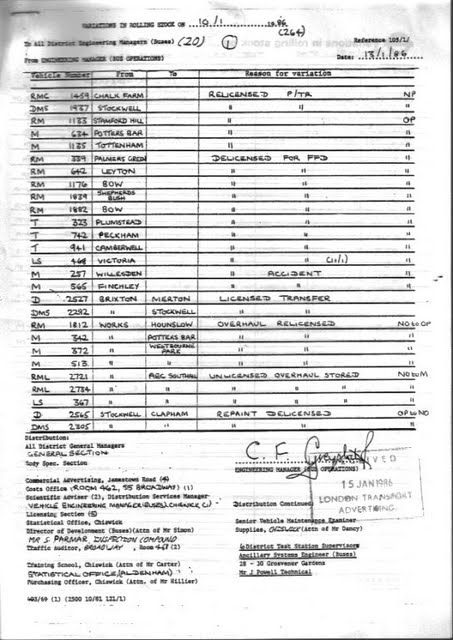 VARIATIONS IN ROLLING STOCK ON 10/1 1986
(264)
To All District Engineering Managers (Buses) (20) (1) Reference 105/1/
From ENGINEERING MANAGER (BUS OPERATIONS) Date: 13/1/86
Vehicle Number From To Reason for variation
RMC 1459 CHALK FARM RELICENSED P/TR NP
DMS 1937 STOCKWELL " " "
RM 1133 STAMFORD HILL " OP
M 634 POTTERS BAR " "
M 1135 TOTTENHAM " "
RM 339 PALMERS GREEN DELICENSED FOR FFD "
RM 642 LEYTON " " "
RM 1176 BOW " " "
RM 1839 SHEPHERDS BUSH " " "
RM 1882 BOW " " "
T 323 PLUMSTEAD " " "
T 742 PECKHAM " " "
T 941 CAMBERWELL " " "
LS 468 VICTORIA " " (11/1) "
M 257 WILLESDEN " ACCIDENT "
M 565 FINCHLEY " " "
D 2527 BRIXTON MERTON LICENSED TRANSFER
DMS 2292 " STOCKWELL " "
RM 1812 WORKS HOUNSLOW OVERHAUL RELICENSED NO to OP
M 342 " POTTERS BAR " " "
M 372 " WESTBOURNE PARK " " "
M 513 " " " " "
RML 2721 " AEC SOUTHALL UNLICENSED OVERHAUL STORED NO to M
RML 2734 " " " " " "
LS 367 " " " " " "
D 2565 STOCKWELL CLAPHAM REPAINT DELICENSED OP to NO
DMS 2305 " " " " "
Distribution:
All District General Managers
GENERAL SECTION
Body Spec. Section
ENGINEERING MANAGER (BUS OPERATIONS)
RECEIVED
15 JAN 1986
LONDON TRANSPORT
ADVERTISING.
Commercial Advertising, Jamestown Road (4)
Costs Office (ROOM 462, 55 BROADWAY) (1)
Scientific Adviser (2), Distribution Services Manager
VEHICLE ENGINEERING MANAGER (BUSES) CHISWICK (1)
Distribution Continued
Licensing Section (5)
Statistical Office, Chiswick
Director of Development (Buses) (Attn of Mr Simon)
MR S PARMAR INSPECTION COMPOUND
Traffic Auditor, BROADWAY, ROOM 467 (2)
Senior Vehicle Maintenance Examiner
Supplies, CHISWICK (Attn of Mr Dancy)
6 District Test Station Supervisors
Ancillary Systems Engineer (Buses)
28 - 30 Grosvenor Gardens
Mr J Powell Technical
Training School, Chiswick (Attn of Mr Carter)
STATISTICAL OFFICE (ALDENHAM)
Purchasing Officer, Chiswick (Attn. of Mr Hillier)
403/69 (1) (2500 10/81 121/1)